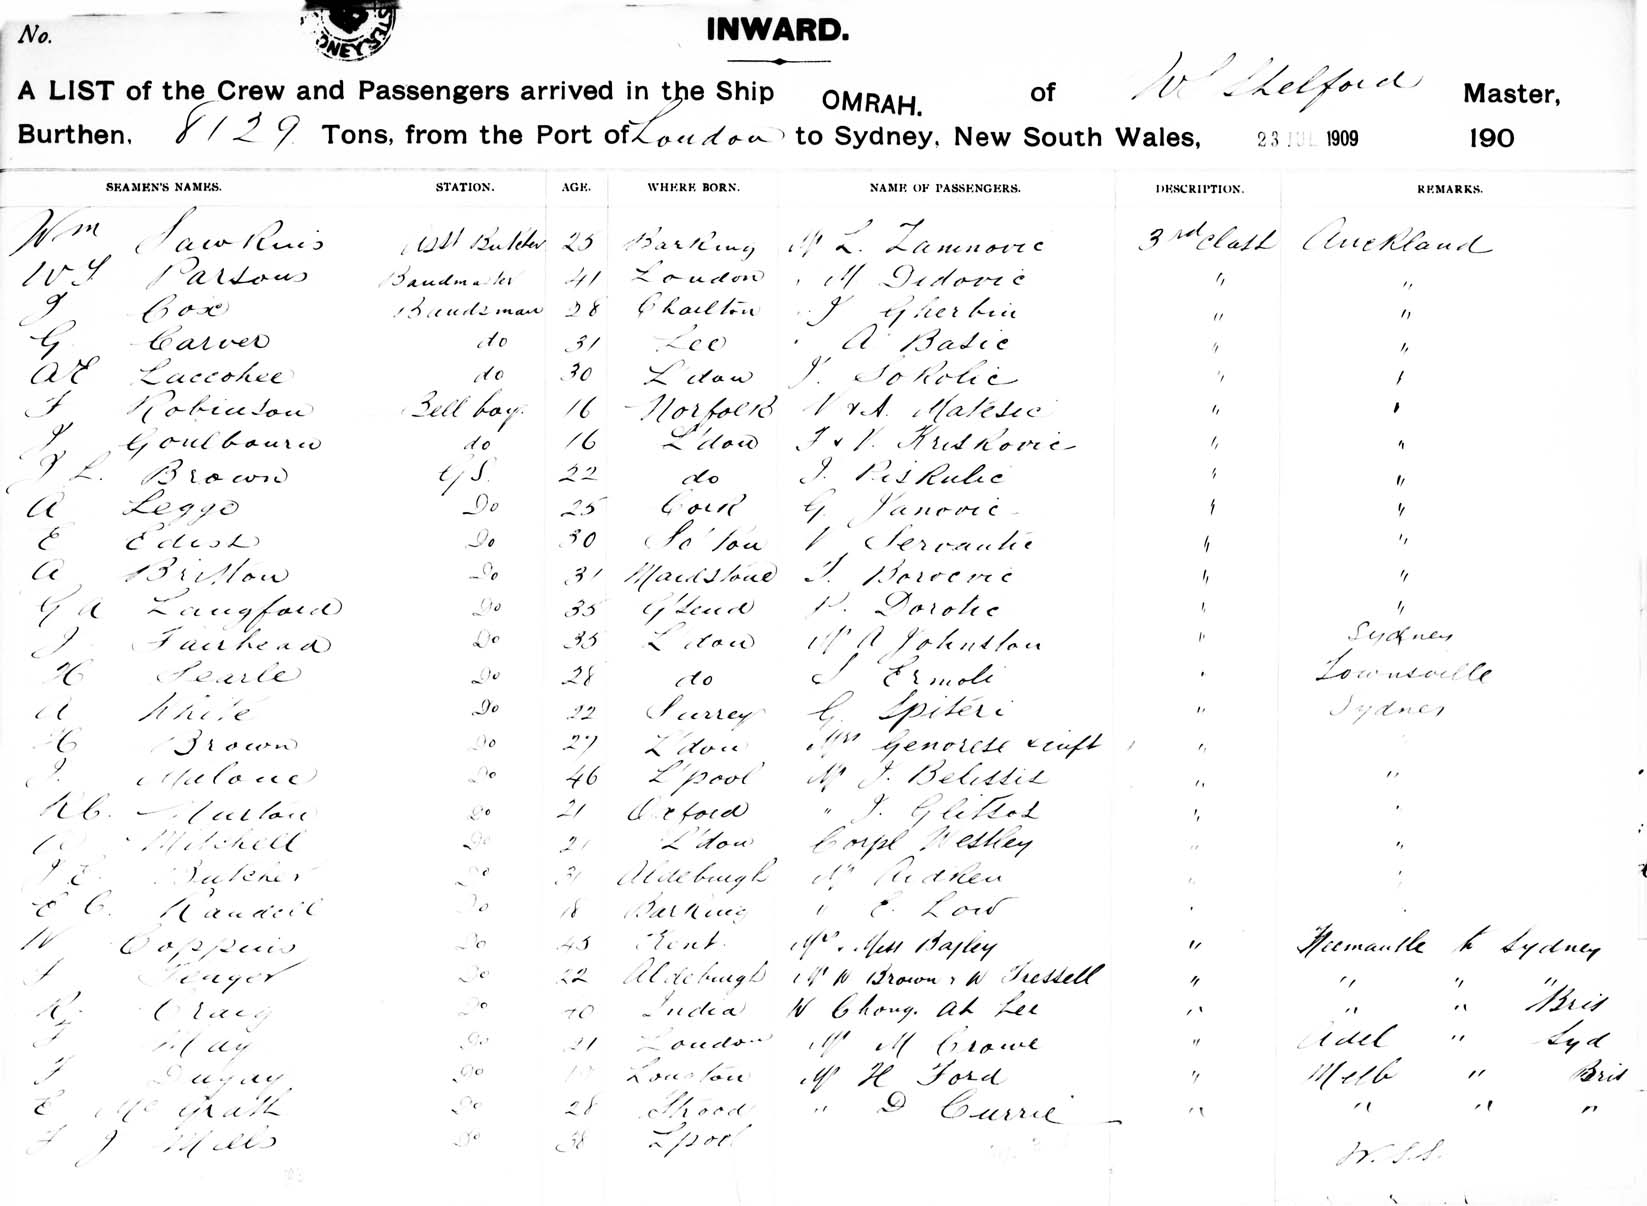 No.
INWARD.
A LIST of the Crew and Passengers arrived in the Ship OMRAH. of W S Shelford Master,
Burthen, 8129 Tons, from the Port of London to Sydney, New South Wales, 23 JUL 1909 190
SEAMEN'S NAMES. STATION. AGE. WHERE BORN. NAME OF PASSENGERS. DESCRIPTION. REMARKS.
Wm Sawkins Asst Butcher 25 Barking Mr L. Zamnovic 3rd Class Auckland
Parsons Bandmaster 41 London " M Didovic " "
J Cox Bandsman 28 Charlton " J Gherbin " "
G. Carver do 31 Lee " A Basic " "
AE Laccohee do 30 L'don J. Sokolic " "
F Robinson Bell boy. 16 Norfolk V & A. Malesic " "
J Goulbourn do 16 L'don J & V. Kriskovic " "
J L. Brown G.S. 22 do J. Piskulic " "
A Legge Do 25 Cork G Janovic " "
E Edish Do 30 So'ton V Servantic " "
A Britton Do 31 Maidstone J. Borocvic " "
G A Langford Do 35 G'send P. Dorotic " "
J. Fairhead Do 35 L'don Mr A Johnston " Sydney
H Searle Do 28 do S Ermoli " Townsville
A White Do 22 Surrey G. Spiteri " Sydney
H Brown Do 27 L'don Mrs Genorese & inft " "
J. Malone Do 46 L'pool Mr J. Belissis " "
R C. Murton Do 21 Oxford " J. Glitsos " "
Mitchell Do 21 L'don Corpl Westley " "
J E. Butcher Do 31 Aldeburgh Mr Aidken " "
E C. Randell Do 18 Barking " E. Low " "
W Coppins Do 45 Kent. Mrs. Miss Bagley " Freemantle to Sydney
F Do 22 Aldeburgh Mr W Brown & W Tressell " " " "
Craig Do India W Chong. Ah Lee " " " Bris
F May Do 21 London Mr M Crowe " Adel " Syd
F Do Mr H Ford " Melb " Bris
E McGrath Do 28 Strood " D Currie " " " "
F J Mills Do 38 Lpool
W.S.S.